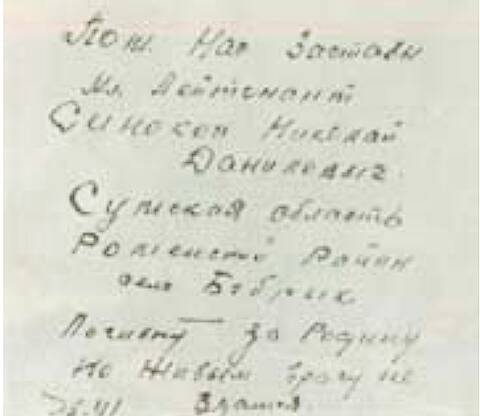 Пом. Нач Заставы
Мл. Лейтенант
Синокоп Николай
Данилович.
Сумская область
Роменский Район
село Бобрык
Погибну за Родину
но Живым врагу не
сдамся.